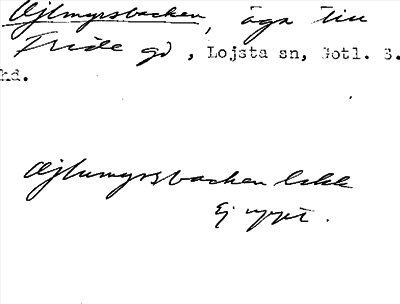 Ajlmyrsbacken, äga till
Fride gd, Lojsta sn, Gotl. S.
hd.
Ajlumyrsbacken lokk
Ej uppt.